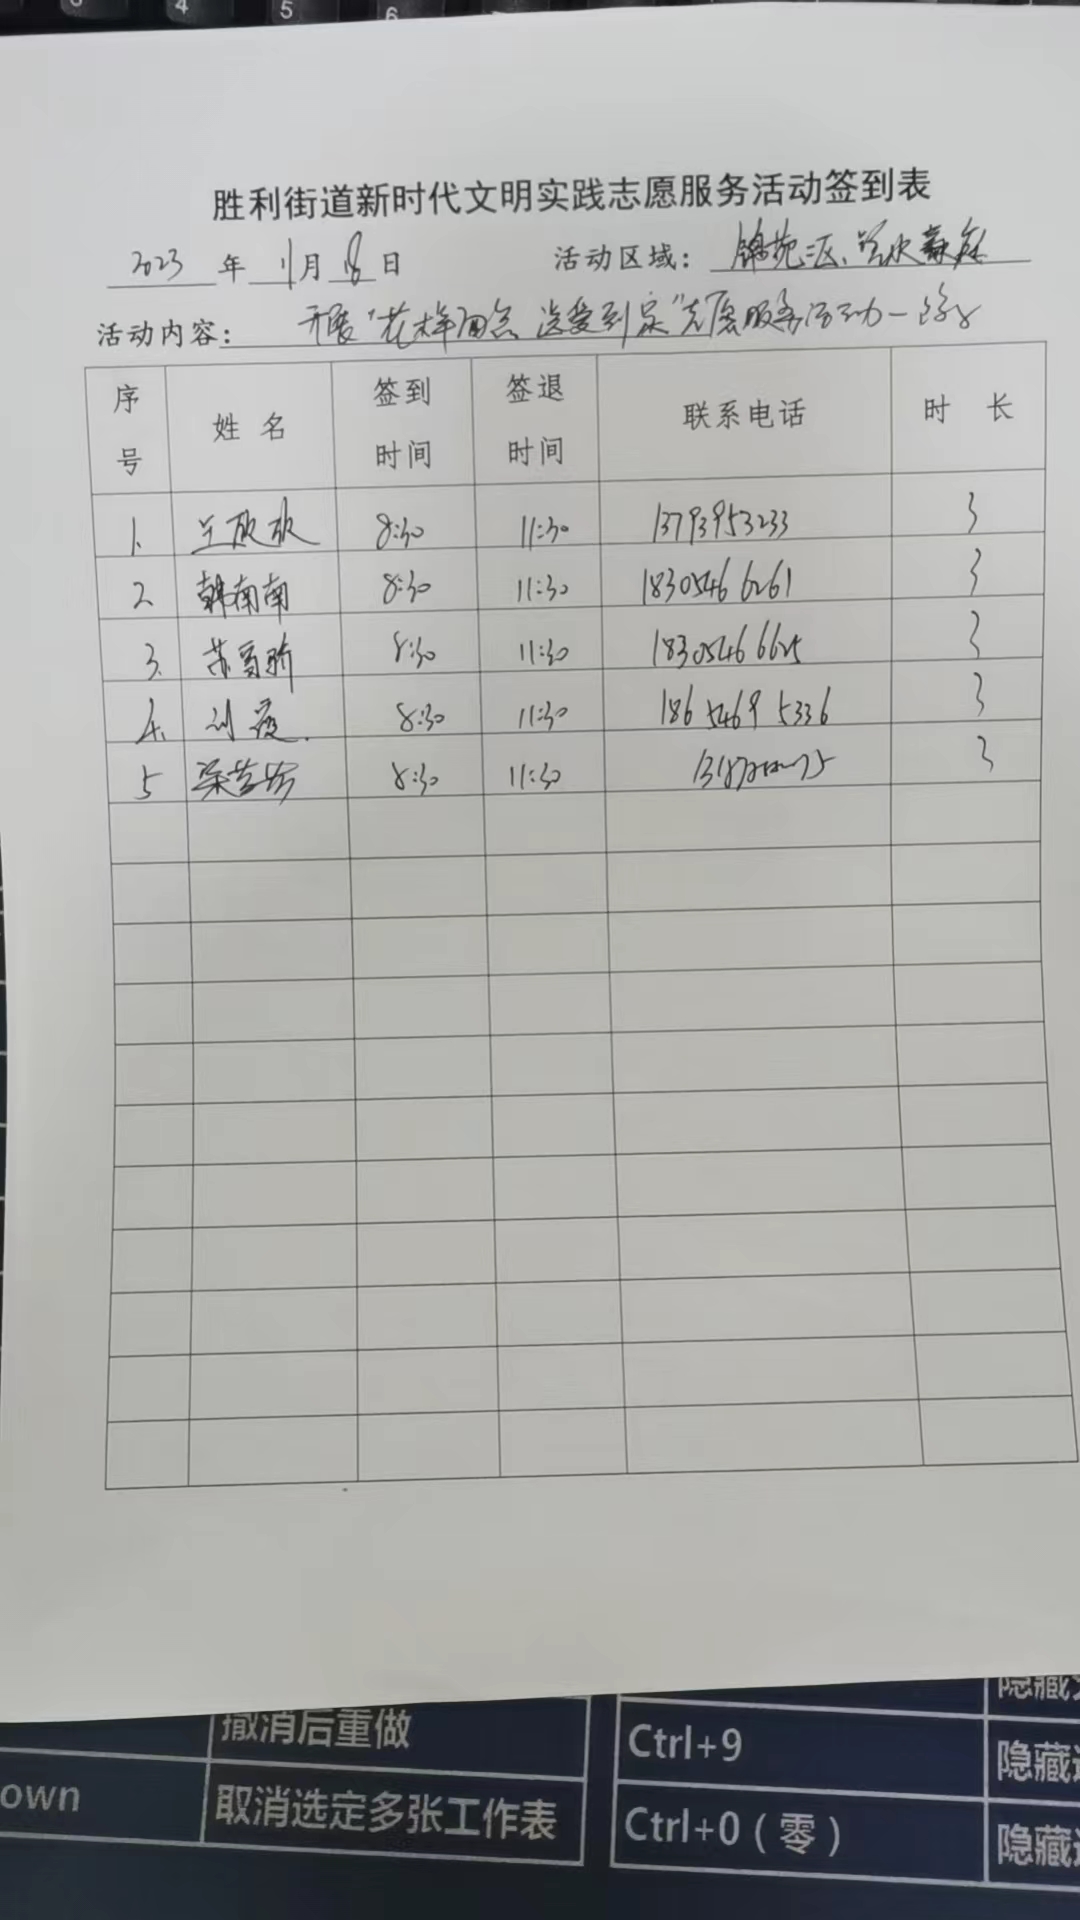 4 5 6
胜利街道新时代文明实践志愿服务活动签到表
2023 年 11月 18日 活动区域: 锦苑三区
活动内容: 开展"花样面点 送爱到家"志愿服务活动
序号 姓名 签到时间 签退时间 联系电话 时 长
1. 兰欣欣 8:30 11:30 13793953233 3
2. 韩南南 8:30 11:30 18305466261 3
3. 苏 8:30 11:30 18305466625 3
4. 刘 8:30 11:30 18654695336 3
5 8:30 11:30 3
撤消后重做 Ctrl+9 隐藏
own 取消选定多张工作表 Ctrl+0(零) 隐藏